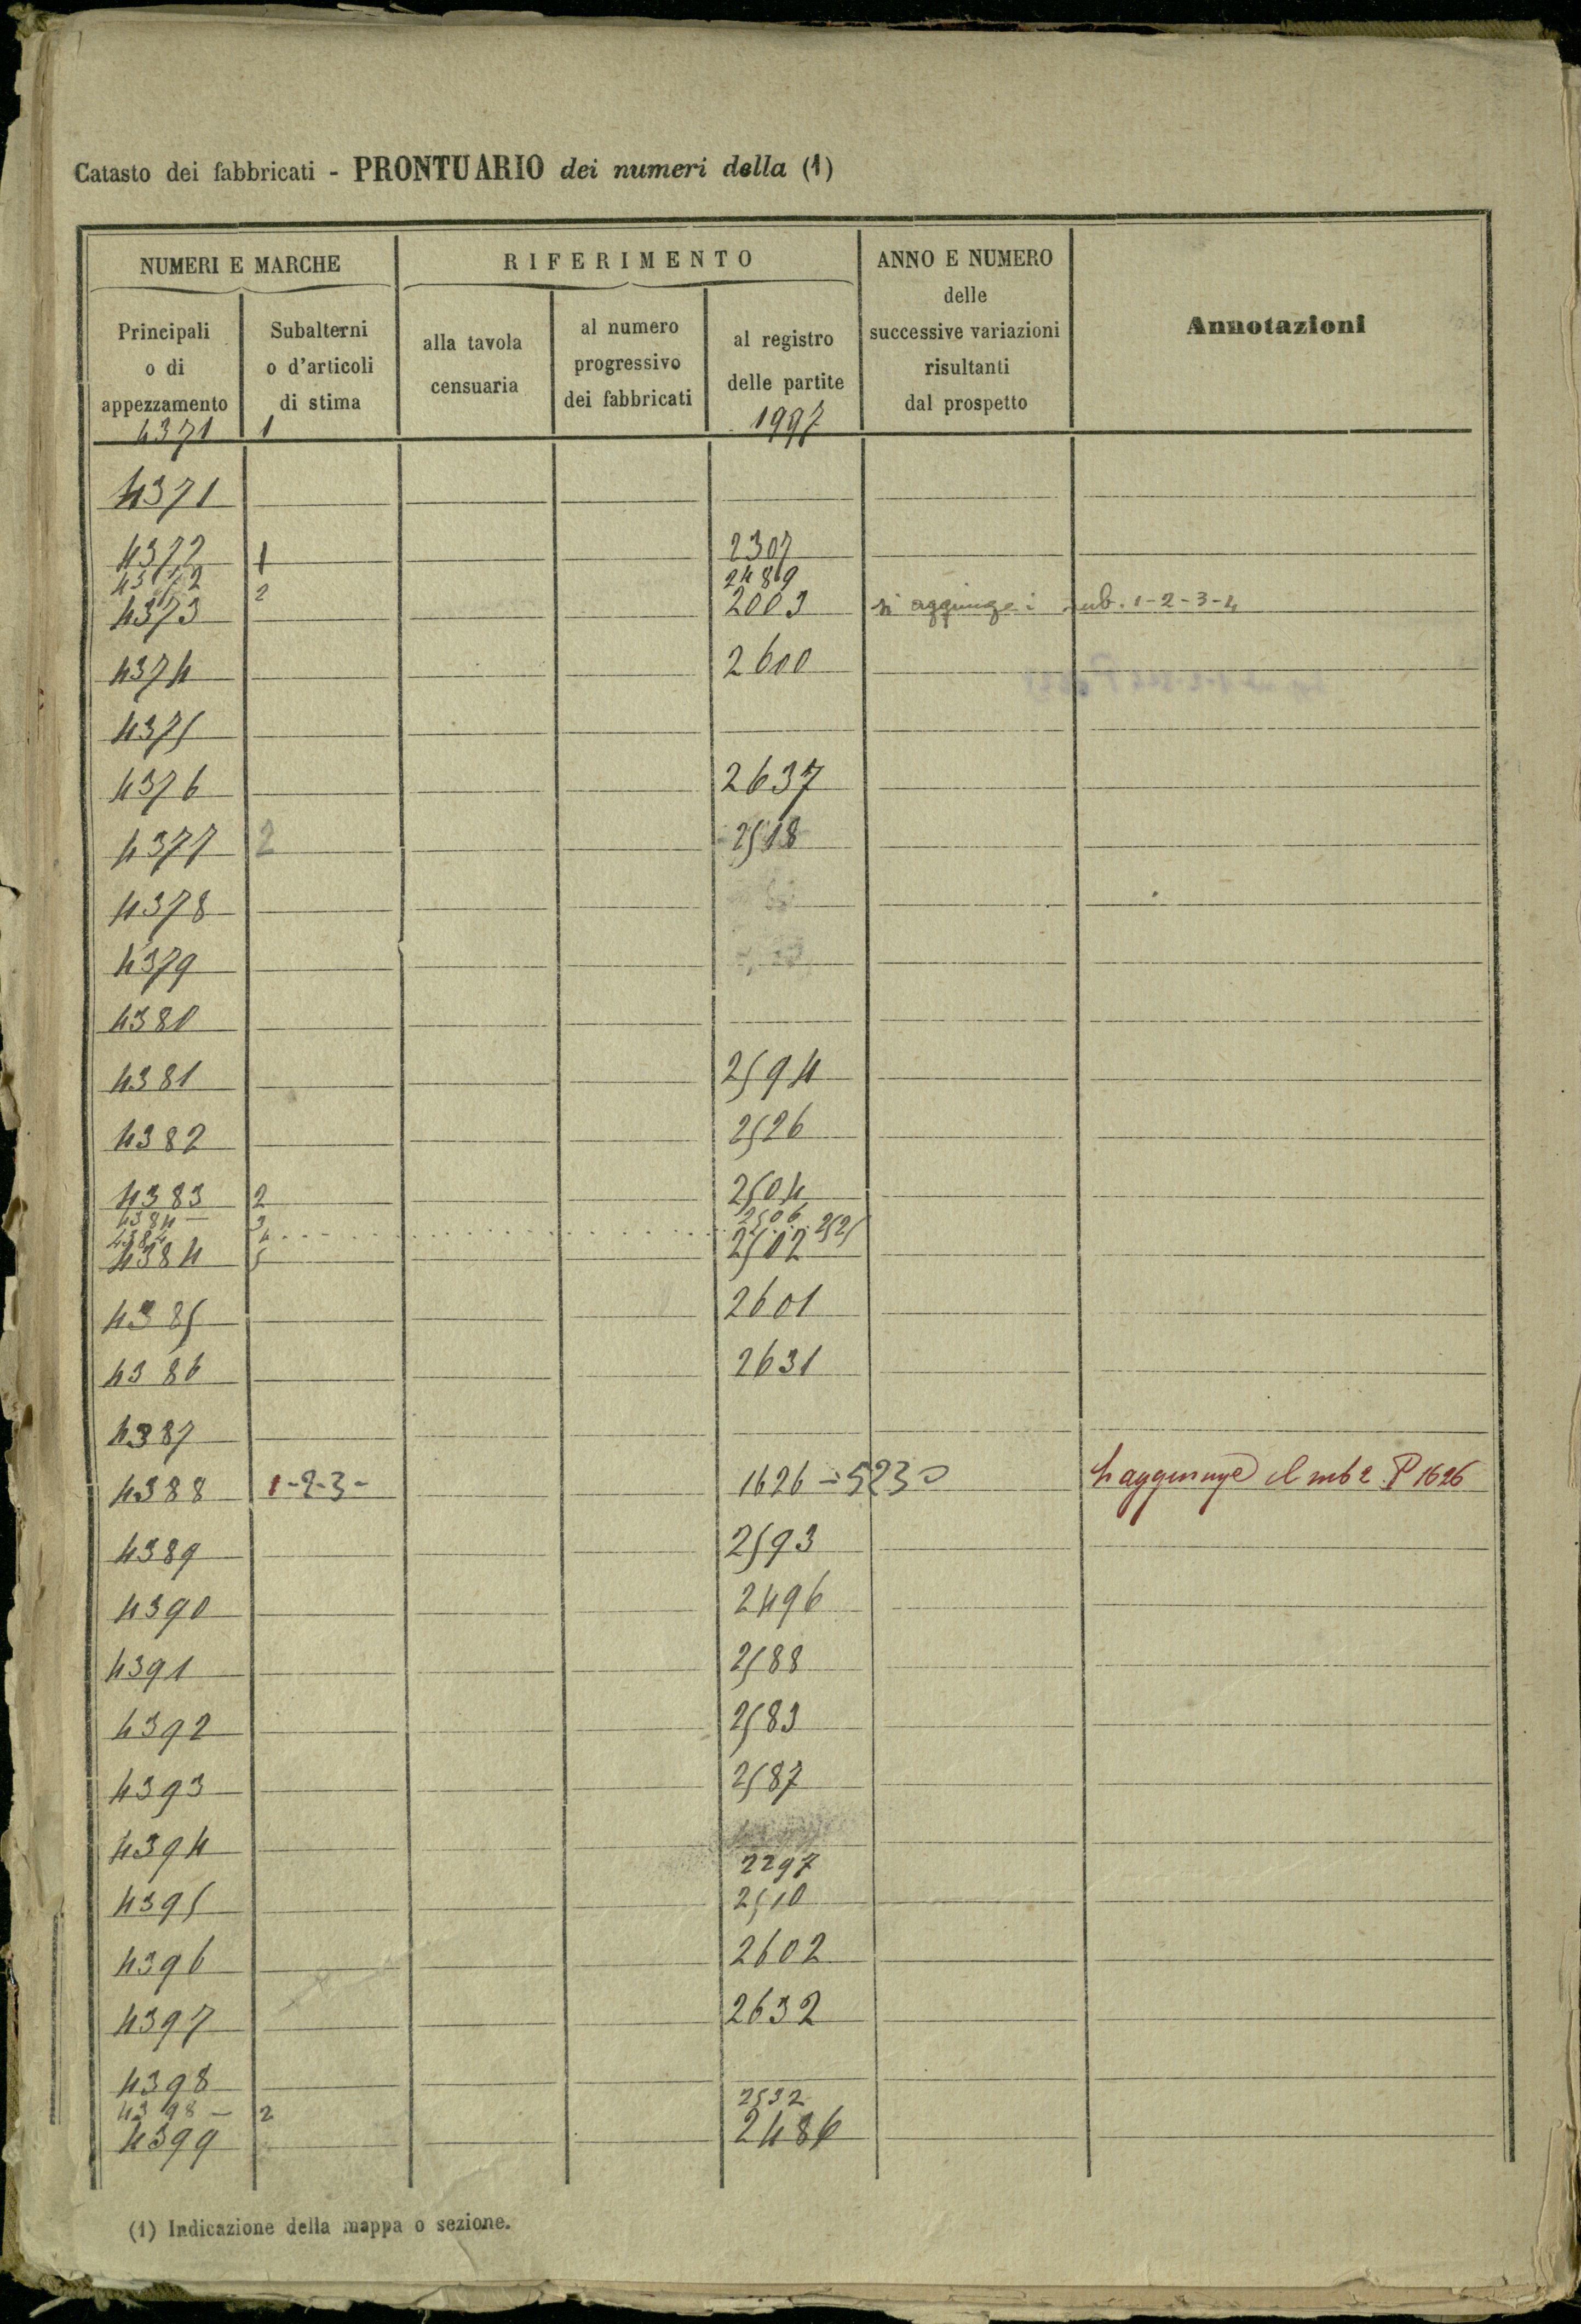 Catasto dei fabbricati - PRONTUARIO dei numeri della (1)
NUMERI E MARCHE
RIFERIMENTO
ANNO E NUMERO
delle
successive variazioni
risultanti
dal prospetto
Annotazioni
Principali
o di
appezzamento
Subalterni
o d'articoli
di stima
alla tavola
censuaria
al numero
progressivo
dei fabbricati
al registro
delle partite
4371 1 1997
4371
4372 1 2307
4372 2 2489
4373 2003 si aggiunge i sub. 1-2-3-4
4374 2600
4375
4376 2637
4377 2 2518
4378
4379
4380
4381 2594
4382 2526
4383 2 2504
4384 3 2506
4384 4 2525
4384 5 2502
4385 2601
4386 2631
4387
4388 1-2-3- 1626 - 5230 si aggiunge il sub 2 P 1626
4389 2593
4390 2496
4391 2588
4392 2583
4393 2587
4394 2297
4395 2510
4396 2602
4397 2632
4398
4398 - 2 2532
4399 2486
(1) Indicazione della mappa o sezione.